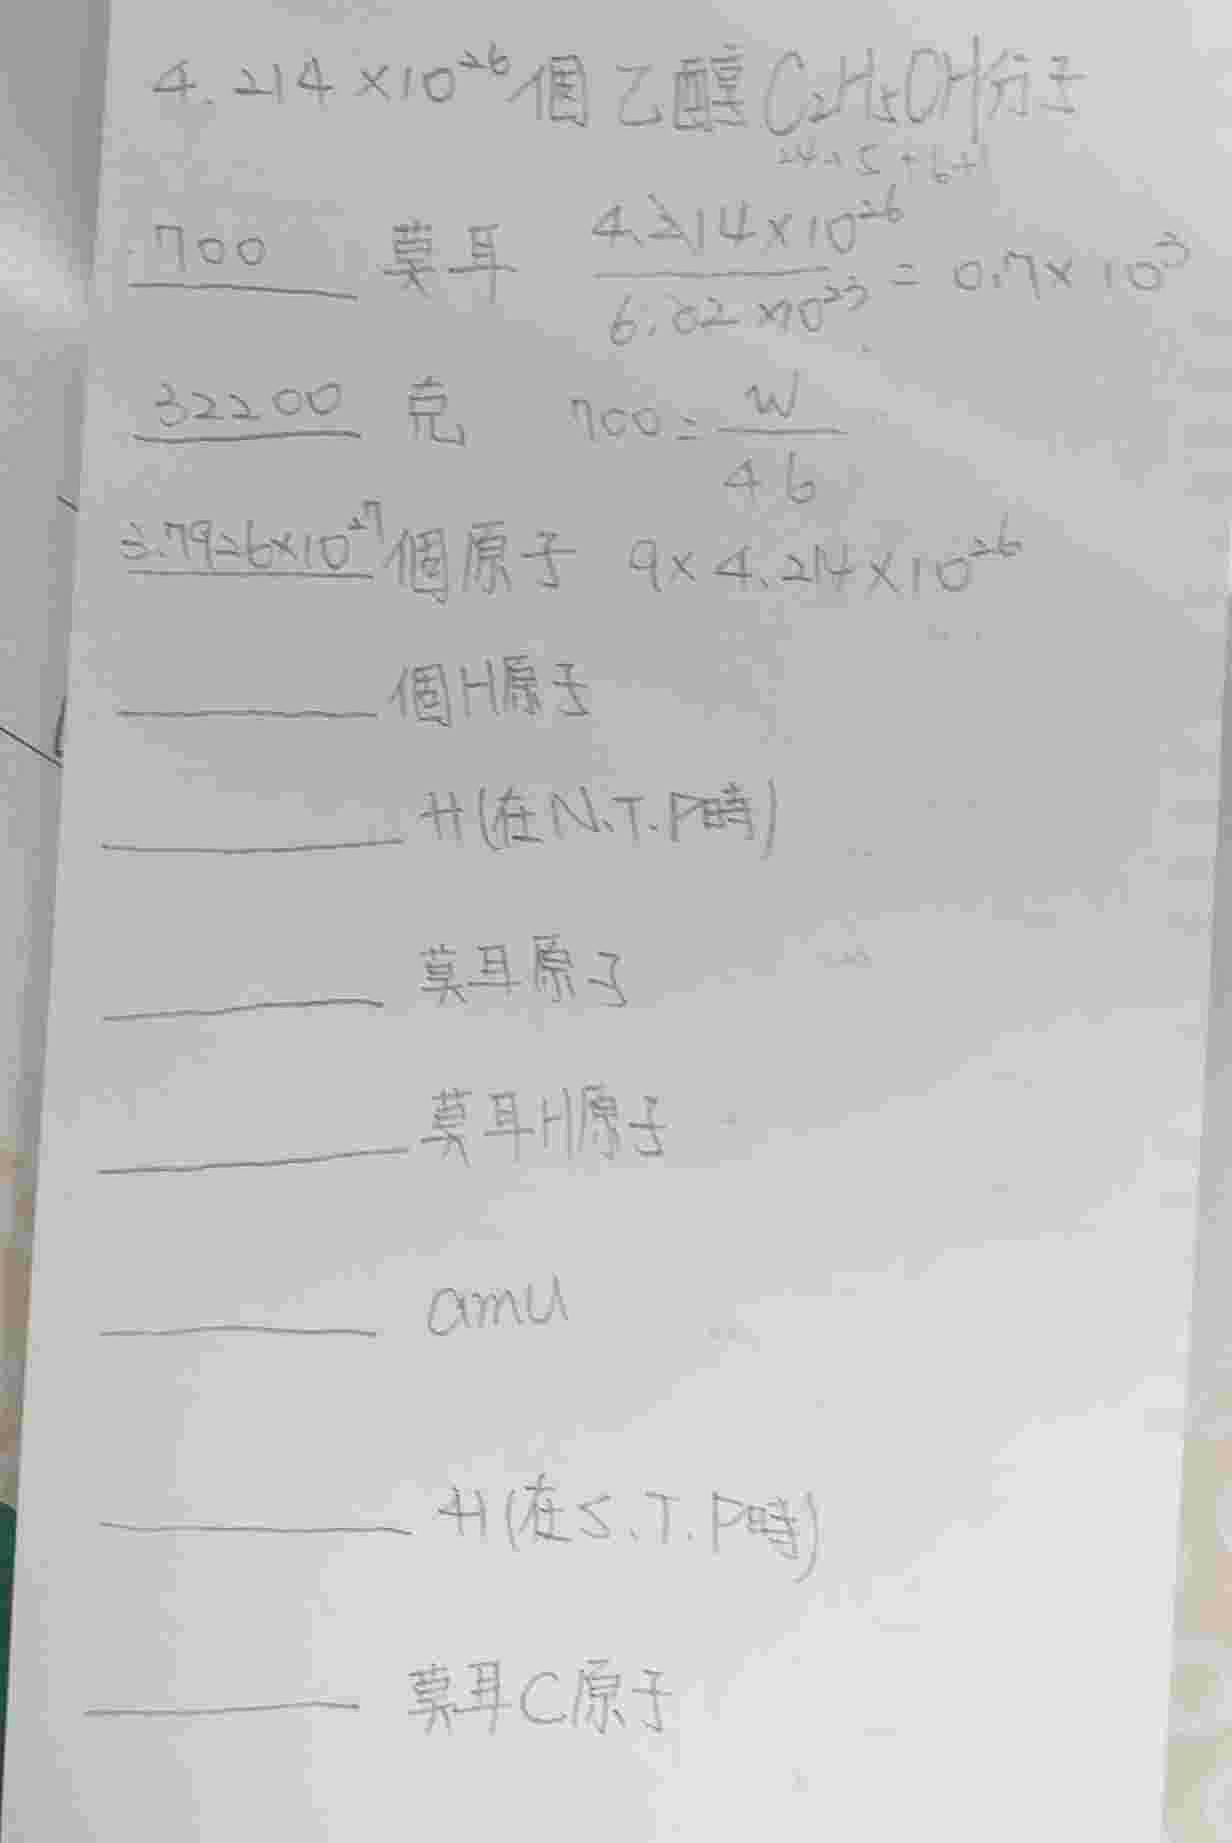 4.214×10²⁶個乙醇C₂H₅OH分子
24+5+16+1
700 莫耳 4.214×10²⁶ / 6.02×10²³ = 0.7×10³
32200 克 700 = W / 46
3.7926×10²⁷個原子 9×4.214×10²⁶
個H原子
升(在N.T.P時)
莫耳原子
莫耳H原子
amu
升(在S.T.P時)
莫耳C原子